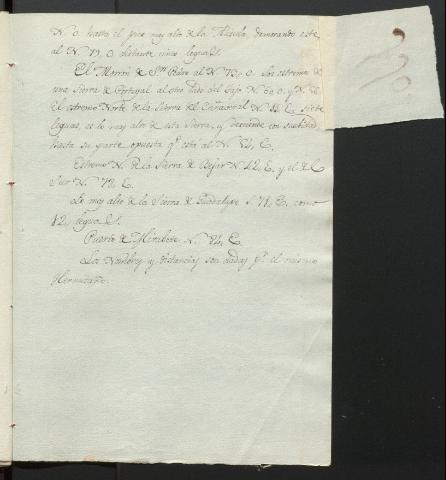 N. O. hasta el pico mas alto de la Mesula, demorando este
al N. 79, O. distante cinco leguas.
El Morron de Sn. Pedro al N. 73, O. Los estremos de
una Sierra de Portugal al otro lado del Tajo N. 60 O. y N. 56
el estremo Norte de la Sierra del Cañaveral N. 15 E. siete
leguas, es lo muy alto de esta Sierra, y deciende con suavidad
hasta su parte opuesta qe. está al N. 34, E.
Estremo N. de la Sierra de Bejar N. 42, E. y el del
Sur N. 72, E.
Lo muy alto de la Sierra de Guadalupe S. 71, E. como
12 leguas.
Puerto de Mirabete N. 84, E.
Los Nombres y distancias son dadas pr. el mismo
Hermitaño.